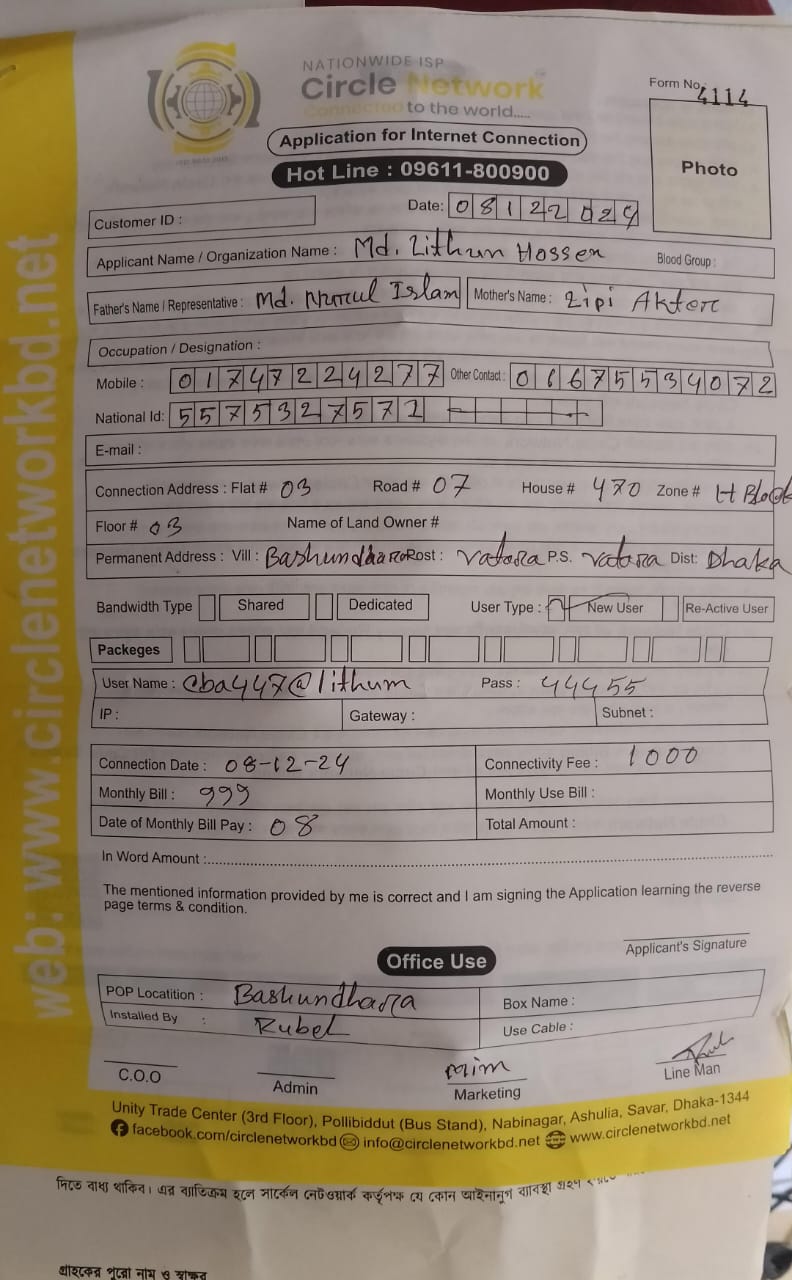 NATIONWIDE ISP
Circle Network
Connected to the world.....
Form No. 4114
Application for Internet Connection
Photo
Hot Line : 09611-800900
Date: 08122024
Customer ID :
Applicant Name / Organization Name : Md. Lithun Hossen Blood Group :
Father's Name / Representative : Md. Nurul Islam Mother's Name : Lipi Akter
Occupation / Designation :
Mobile : 01747224277 Other Contact : 06675534072
National Id: 5575327571
E-mail :
Connection Address : Flat # 03 Road # 07 House # 470 Zone # H Block
Floor # 03 Name of Land Owner #
Permanent Address : Vill : Bashundhara Post : Vatara P.S. Vatara Dist: Dhaka
Bandwidth Type Shared Dedicated User Type : New User Re-Active User
Packeges
User Name : cba447@lithum Pass : 44455
IP : Gateway : Subnet :
Connection Date : 08-12-24 Connectivity Fee : 1000
Monthly Bill : 999 Monthly Use Bill :
Date of Monthly Bill Pay : 08 Total Amount :
In Word Amount :
The mentioned information provided by me is correct and I am signing the Application learning the reverse
page terms & condition.
Applicant's Signature
Office Use
POP Locatition : Bashundhara Box Name :
Installed By : Rubel Use Cable :
C.O.O Admin Mim Marketing Line Man
Unity Trade Center (3rd Floor), Pollibiddut (Bus Stand), Nabinagar, Ashulia, Savar, Dhaka-1344
facebook.com/circlenetworkbd info@circlenetworkbd.net www.circlenetworkbd.net
web: www.circlenetworkbd.net
দিতে বাধ্য থাকিব। এর ব্যাতিক্রম হলে সার্কেল নেটওয়ার্ক কর্তৃপক্ষ যে কোন আইনানুগ ব্যাবস্থা গ্রহণ
গ্রাহকের পুরো নাম ও স্বাক্ষর